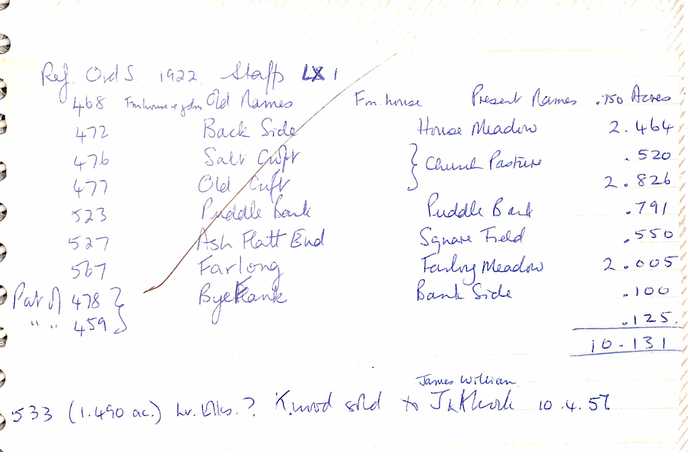 Ref. Ord S 1922 Staffs LX 1
468 Fm. house & gdn Old Names Fm. house Present Names .750 Acres
472 Back Side House Meadow 2.464
476 Salt Croft } Church Pasture .520
477 Old Cuft 2.826
523 Puddle Bank Puddle Bank .791
527 Ash Flatt End Square Field .550
567 Farlong Farlong Meadow 2.005
Part of 478 } Bye Bank Side .100
" " 459 } .125
10.131
James William
533 (1.490 ac.) sold to 10.4.57